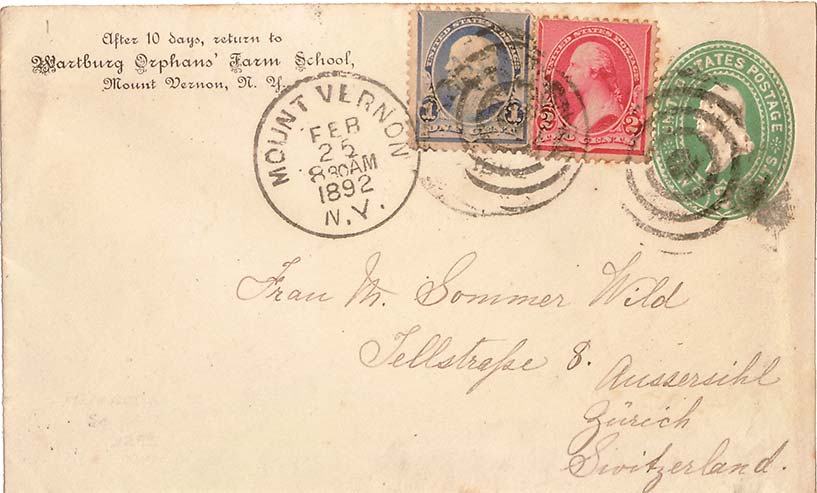 After 10 days, return to
Wartburg Orphans' Farm School,
Mount Vernon, N. Y.
UNITED STATES POSTAGE
1 1
UNITED STATES POSTAGE
2 2
CENTS
UNITED STATES POSTAGE
MOUNT VERNON
FEB
25
830AM
1892
N.Y.
Frau M. Sommer Wild
Tellstraße 8. Aussersihl
Zürich
Switzerland.